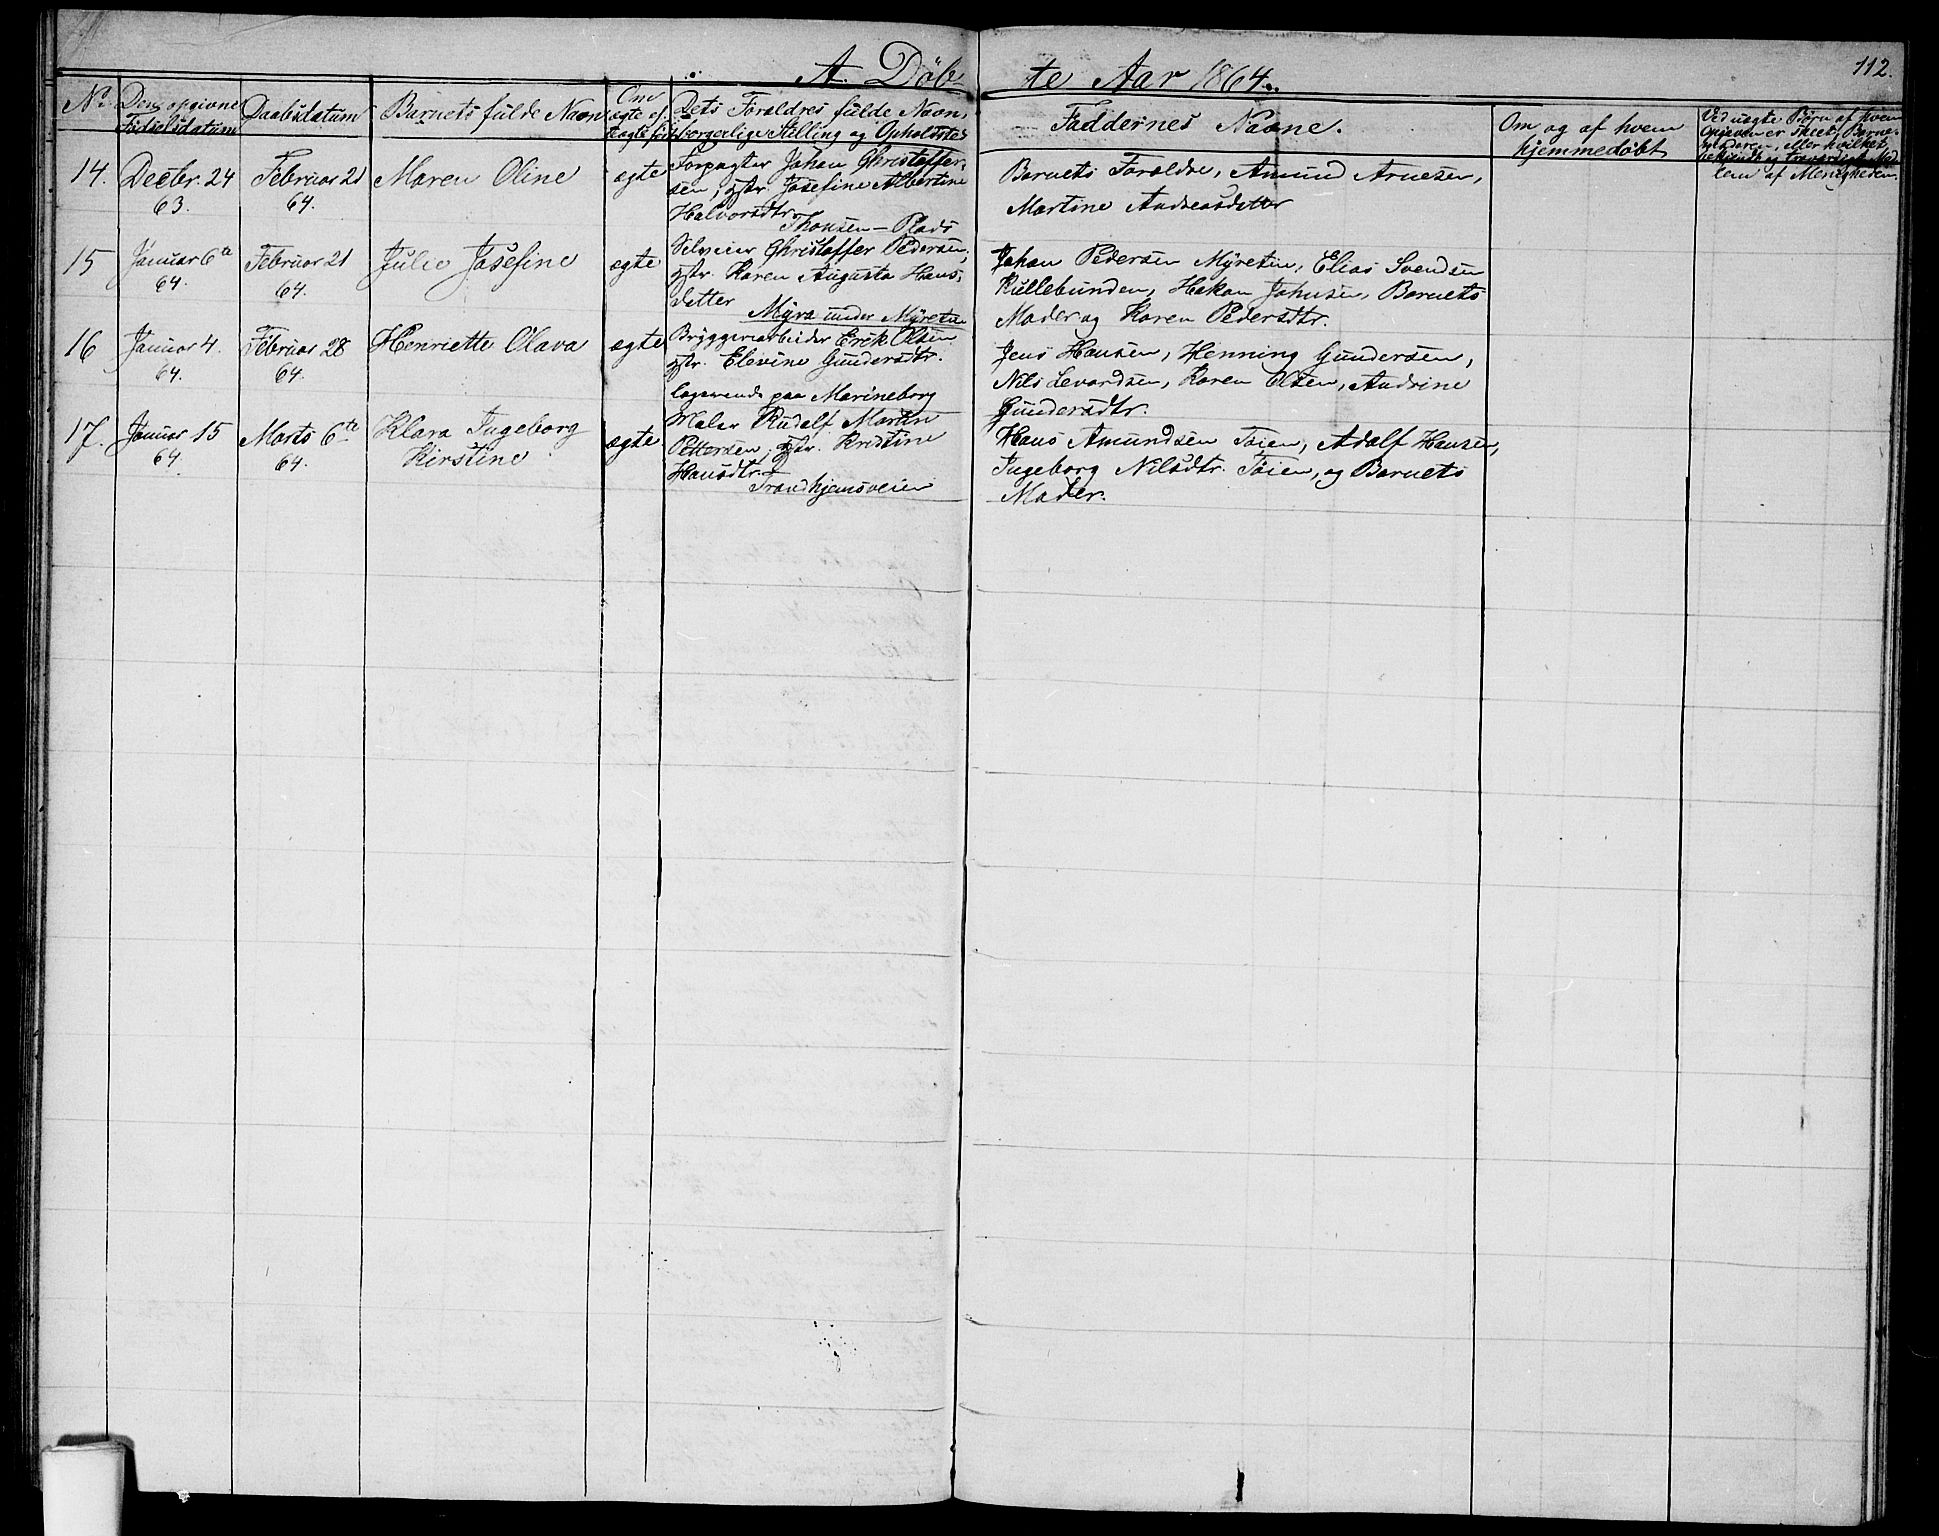 112.
A. Döb- te Aar 1864.
No. Den opgivne Fødselsdatum Daabsdatum Barnets fulde Navn Om ægte el. uægte født
Dets Foraldres fulde Navn,
borgerlige Stilling og Opholdsted
Faddernes Navne.
Om og af hvem
hjemmedøbt
Ved uægte Børn af hvem
Opgaven er skeet, Barne-
moderen, eller hvilket
bekjendt og troværdigt Med-
lem af Menigheden.
14. Decbr. 24 Februar 21 Maren Oline ægte
63. 64.
Forpagter Johan Christoffer-
sen, hstr. Josefine Albertine
Halvorsdtr.
Thousen-Plads
Barnets Foraldre, Amund Arnesen,
Martine Andreasdatter
15 Januar 6te Februar 21 Julie Josefine ægte
64. 64.
Selveier Christoffer Pedersen,
hstr. Karen Augusta Hans-
datter
Myra under Myreten
Johan Pedersen Myreten, Elias Svendsen
Kullebunden, Hakon Johnsen, Barnets
Moder og Karen Pedersdtr.
16 Januar 4. Februar 28 Henriette Olava ægte
64. 64.
Bryggeriarbeider Erik Olsen
hstr. Elevine Gundersdtr.
logerende paa Marineborg
Jens Hansen, Henning Gundersen,
Nils Levordsen, Karen Olsen, Andrine
Gundersdtr.
17. Januar 15 Marts 6te Klara Ingeborg ægte
64. 64. Kirstine
Maler Rudolf Martin
Pettersen, hstr. Kristine
Hansdtr.
Trondhjemsveien
Hans Amundsen Töien, Adolf Hansen,
Ingeborg Nilsdtr. Töien, og Barnets
Moder.